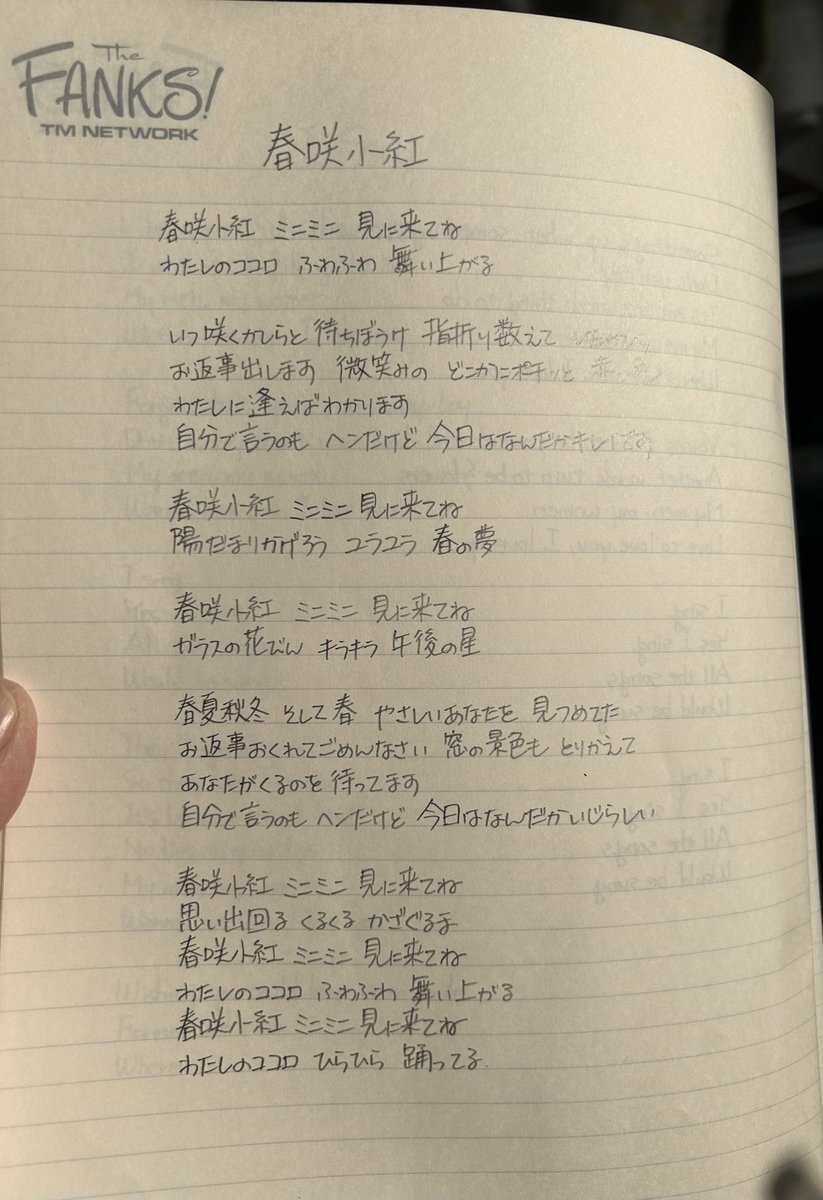 The
FANKS!
TM NETWORK
春咲小紅
春咲小紅 ミニミニ 見に来てね
わたしのココロ ふわふわ 舞い上がる
いつ咲くかしらと 待ちぼうけ 指折り数えて
お返事出します 微笑みの どこかにポチッと
わたしに逢えばわかります
自分で言うのも ヘンだけど 今日はなんだかキレイです
春咲小紅 ミニミニ 見に来てね
陽だまりかげろう ユラユラ 春の夢
春咲小紅 ミニミニ 見に来てね
ガラスの花びん キラキラ 午後の星
春夏秋冬 そして春 やさしいあなたを 見つめてた
お返事おくれてごめんなさい 窓の景色も とりかえて
あなたがくるのを 待ってます
自分で言うのも ヘンだけど 今日はなんだかいじらしい
春咲小紅 ミニミニ 見に来てね
思い出回る くるくる かざぐるま
春咲小紅 ミニミニ 見に来てね
わたしのココロ ふわふわ 舞い上がる
春咲小紅 ミニミニ 見に来てね
わたしのココロ ひらひら 踊ってる